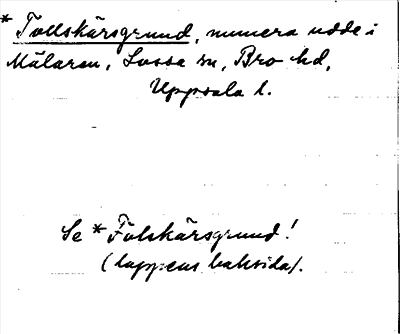 * Tollskärsgrund, numera udde i
Mälaren, Lossa sn, Bro hd,
Uppsala l.
Se * Folskärsgrund!
(lappens baksida).